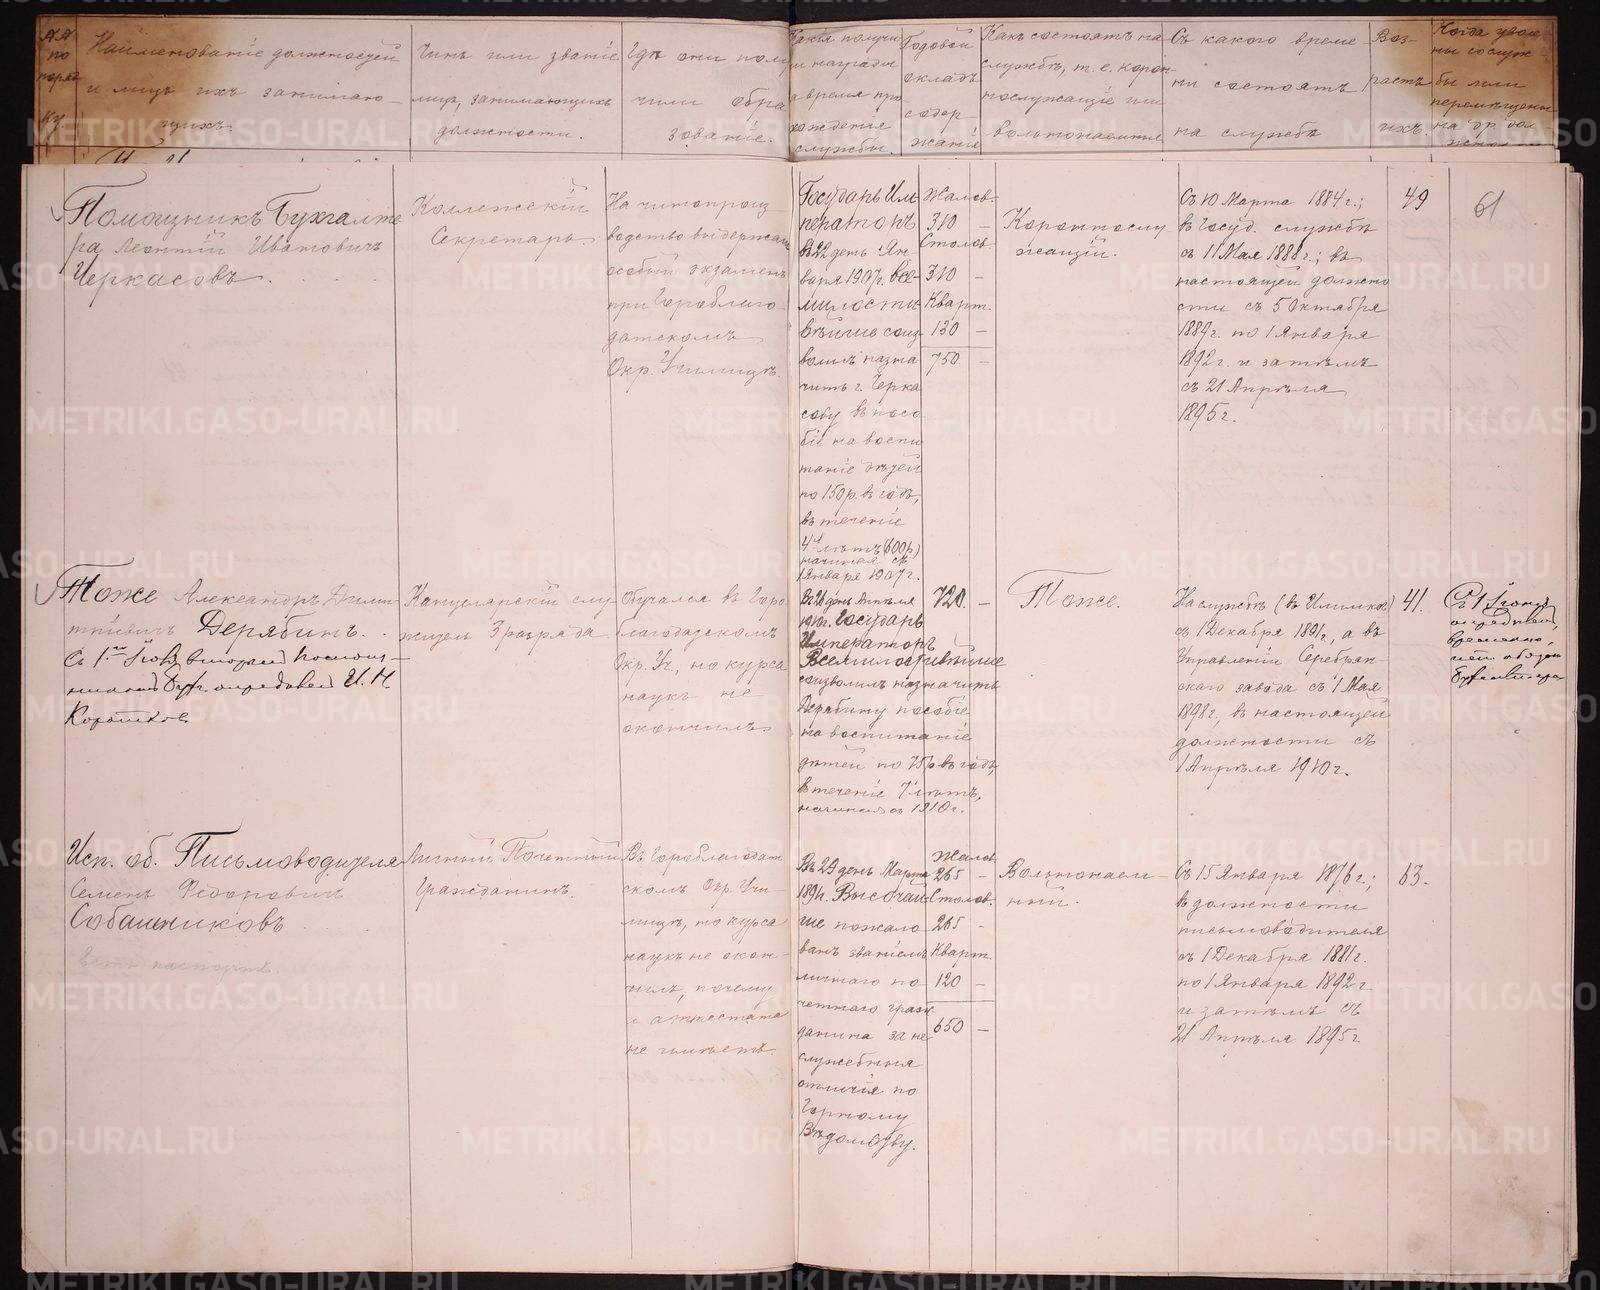 №№ по поряд ку
Наименованіе должностей
и лицъ ихъ занимаю-
щихъ.
Чинъ или званіе
лицъ, занимающихъ
должности.
Гдѣ они полу
чили обра
зованіе.
Какія получи
и награды
время про
хожденія
службы.
Годовой
окладъ
содер
жанія
Какъ состоятъ на
службѣ, т. е. корон
нослужащіе или
вольнонаемные
Съ какого време-
ни состоятъ
на службѣ
Воз-
растъ
ихъ.
Когда уволе
ны со служ-
бы или
перемѣщены
на др. дол
Помощникъ Бухгалте
ра Леонтій Ивановичъ
Черкасовъ.
Коллежскій
Секретарь.
На чинопроиз-
водство выдержалъ
особый экзаменъ
при Гороблаго-
датскомъ
Окр. Училищѣ.
Государь Им-
ператоръ
въ 22 день Ян-
варя 1907 г. Все-
милости-
вѣйше соиз-
волилъ назна-
чить г. Черка-
сову въ посо-
біе на воспи-
таніе дѣтей
по 150 р. въ годъ,
въ теченіе
4-лѣтъ (600 р)
начиная съ
1 Января 1907 г.
Жалов-
310 —
Столов-
310 —
Кварт.
130 —
750 —
Короннослу-
жащій.
Съ 10 Марта 1884 г.;
въ Госуд. службѣ
съ 11 Мая 1888 г.; въ
настоящей должно
сти съ 5 Октября
1889 г. по 1 Января
1892 г. и затѣмъ
съ 21 Апрѣля
1895 г.
49
61
Тоже Александръ Дими-
тріевичъ Дерябинъ.
Съ 1го Іюня вторымъ помощ-
никомъ Бухг. опредѣленъ И. Н.
Коротковъ
Канцелярскій слу-
житель 3 разряда
Обучался въ Горо-
благодатскомъ
Окр. Уч., но курса
наукъ не
окончилъ
Въ 21 день Апрѣля
1910 г. Государь
Императоръ
Всемилостивѣйше
соизволилъ назначить
Дерябину пособіе
на воспитаніе
дѣтей по 75 р въ годъ,
въ теченіе 7 лѣтъ,
начиная съ 1910 г.
720 —
Тоже.
На службѣ (въ Илимкѣ)
съ 1 Декабря 1891 г., а въ
Управленіи Серебрян
скаго завода съ 1 Мая
1898 г., въ настоящей
должности съ
1 Апрѣля 1910 г.
41.
Съ 1 Іюня
опредѣленъ
временно
обязан
бухгалтера
Исп. об. Письмоводителя
Семенъ Ѳедоровичъ
Собашниковъ
Есть паспортъ.
Личный Почетный
Гражданинъ.
Въ Гороблагодат
скомъ Окр. Учи-
лищѣ, но курса
наукъ не окон-
чилъ, почему
и аттестата
не имѣетъ.
Въ 29 день Марта
189 г. Высочай-
ше пожало-
ванъ званіемъ
личнаго по-
четнаго граж-
данина за не-
служебныя
отличія по
Горному
Вѣдомству.
Жалов.
265 —
Столов.
265 -
Кварт
120 —
650 —
Вольнонаем-
ный.
Съ 15 Января 1876 г.;
въ должности
письмоводителя
съ 1 Декабря 1881 г.
по 1 Января 1892 г.
и затѣмъ съ
21 Апрѣля 1895 г.
53.
METRIKI.GASO-URAL.RU